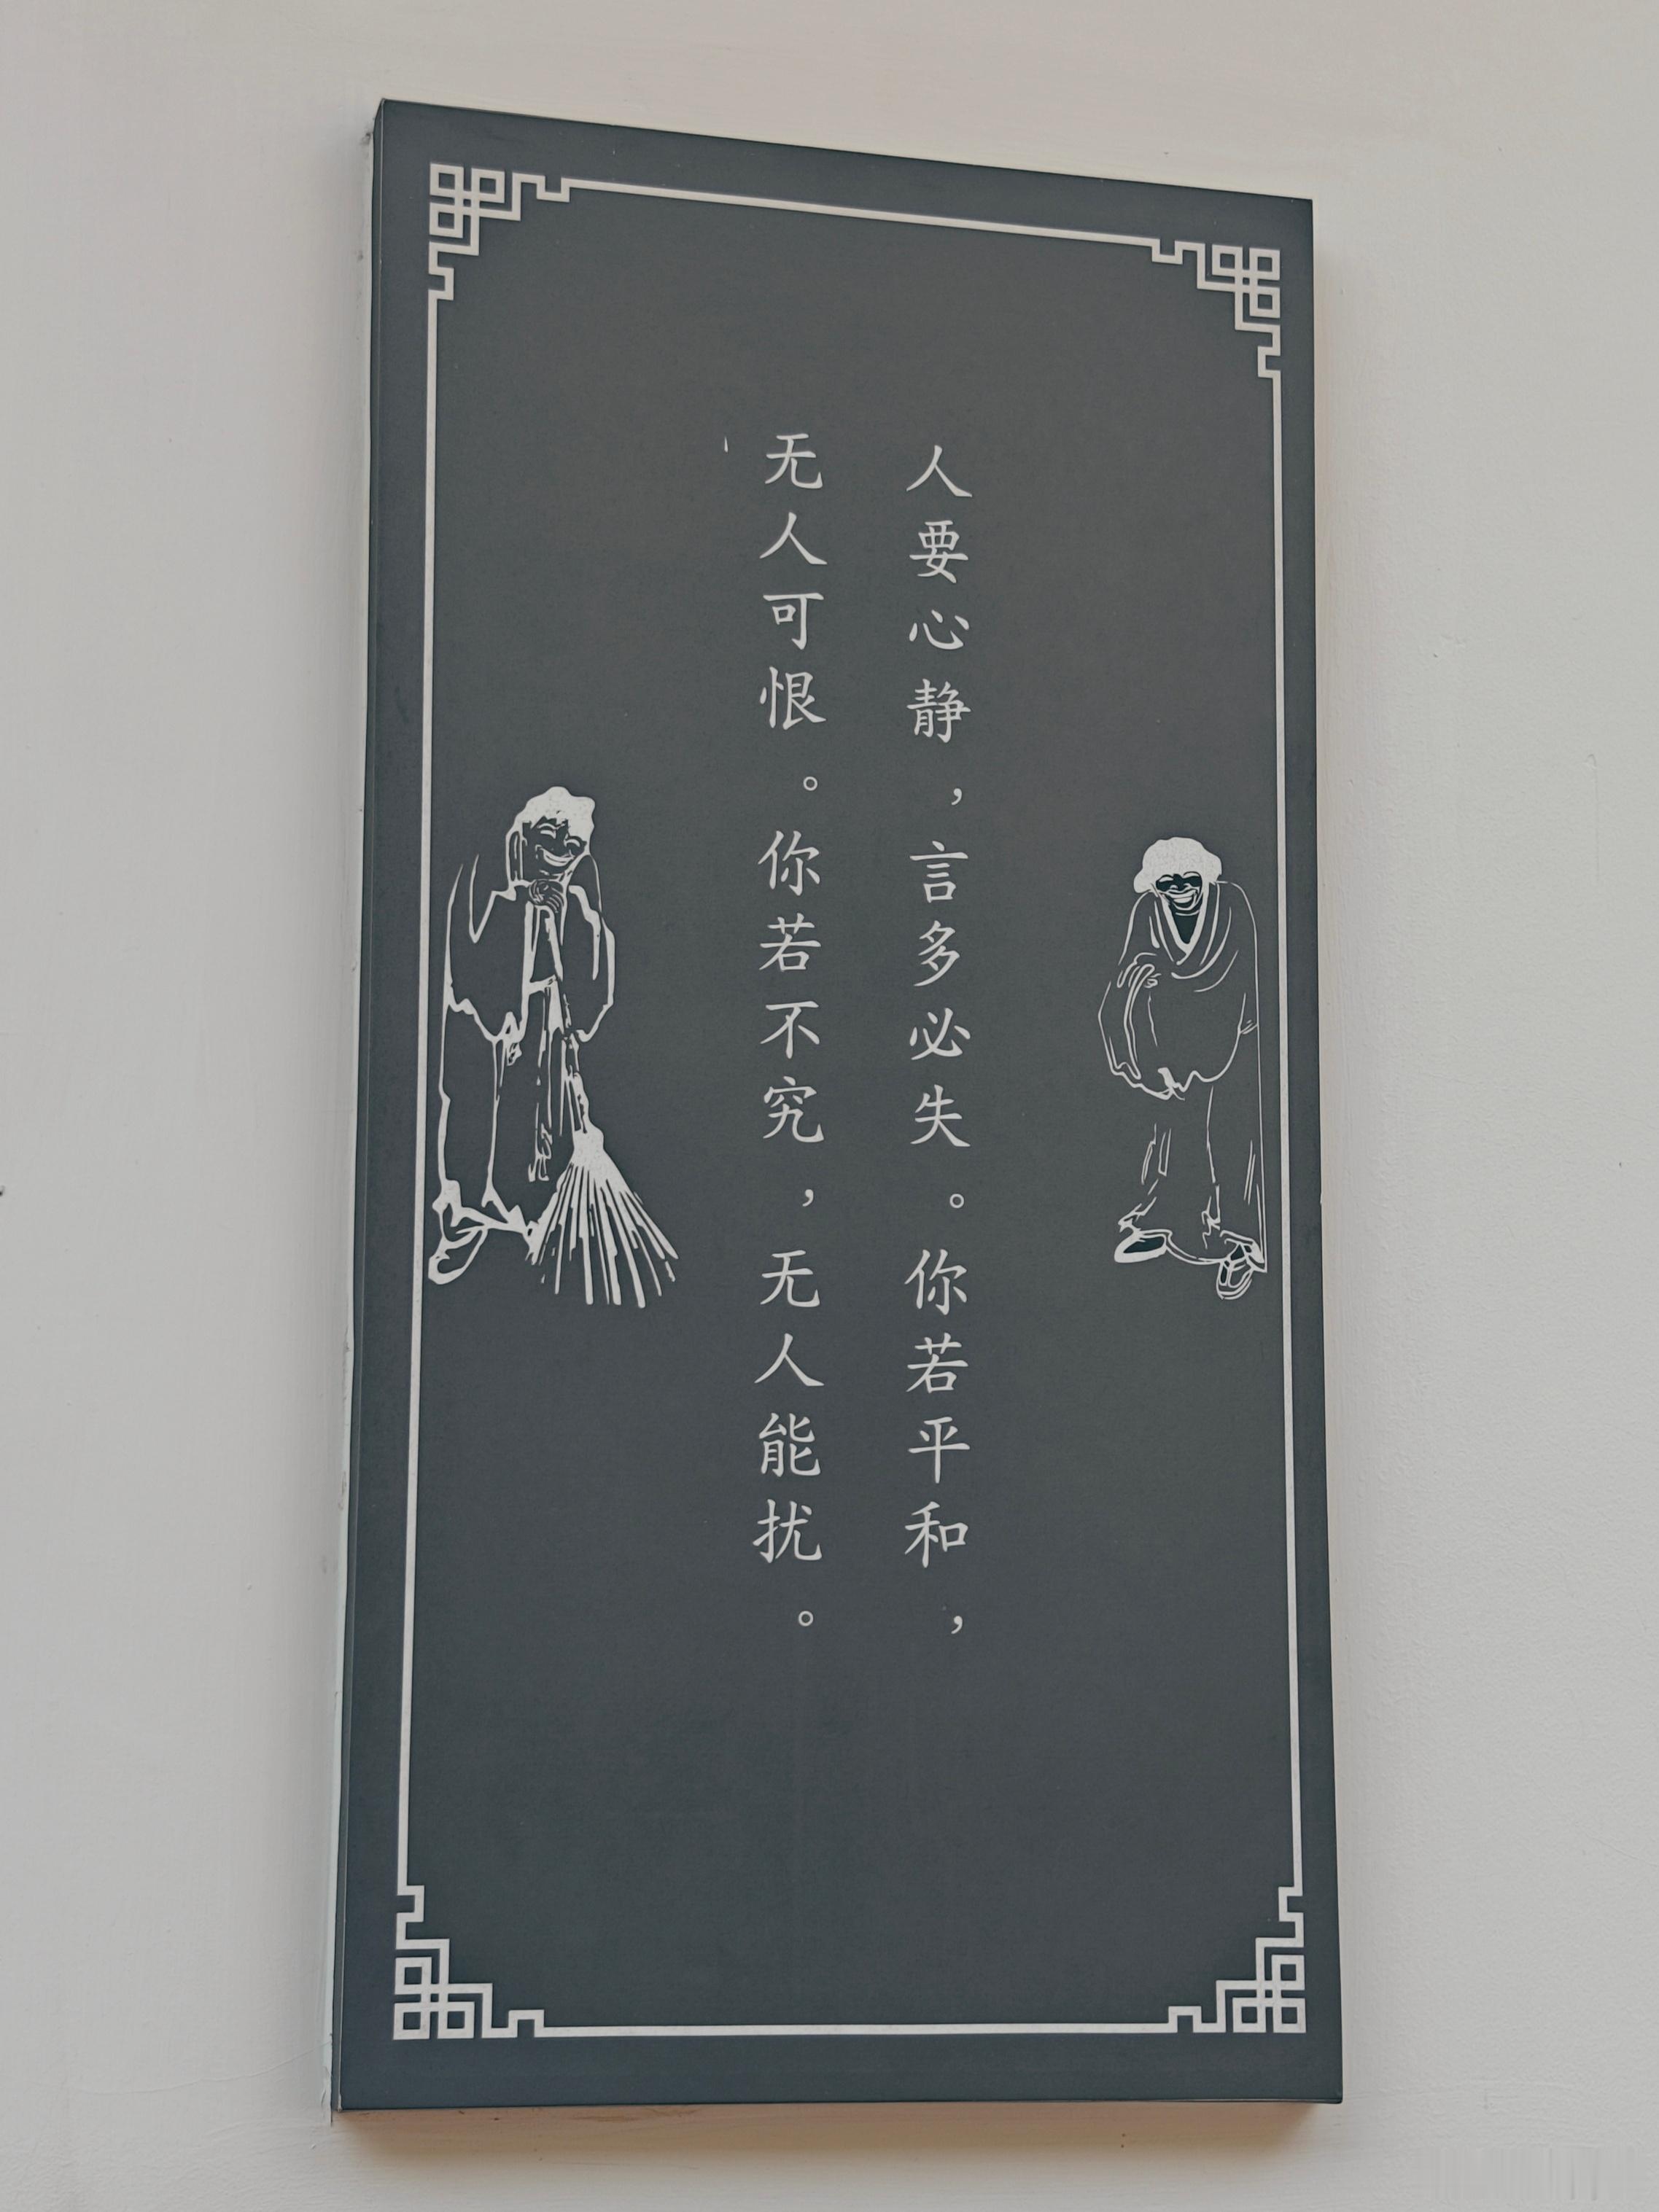 人要心静，言多必失。你若平和，
无人可恨。你若不究，无人能扰。